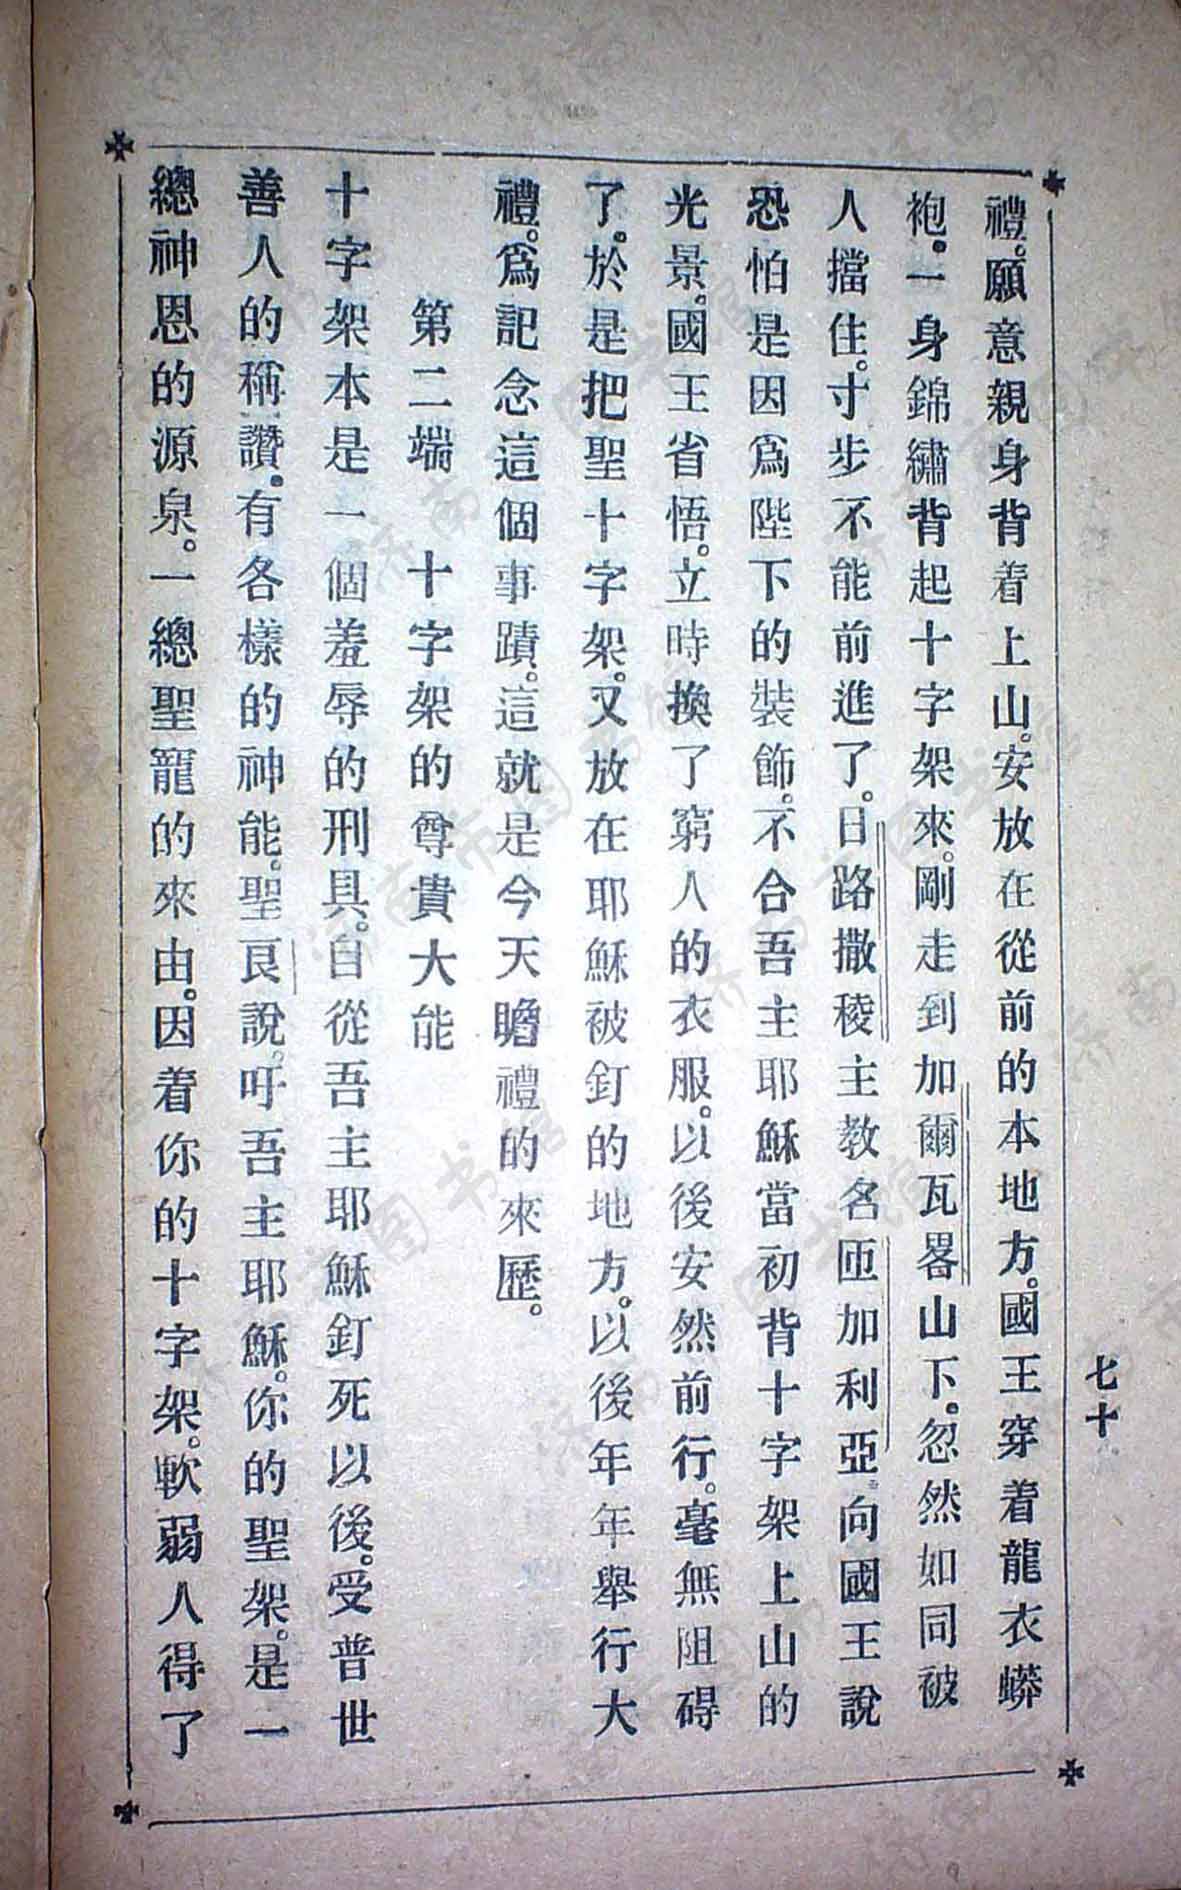 禮。願意親身背着上山。安放在從前的本地方。國王穿着龍衣蟒
袍。一身錦繡背起十字架來。剛走到加爾瓦畧山下。忽然如同被
人擋住。寸步不能前進了。日路撒稜主教名匝加利亞。向國王說
恐怕是因爲陛下的裝飾。不合吾主耶穌當初背十字架上山的
光景。國王省悟。立時換了窮人的衣服。以後安然前行。毫無阻碍
了。於是把聖十字架。又放在耶穌被釘的地方。以後年年舉行大
禮。爲記念這個事蹟。這就是今天瞻禮的來歷。
第二端　十字架的尊貴大能
十字架本是一個羞辱的刑具。自從吾主耶穌釘死以後。受普世
善人的稱讚。有各樣的神能。聖良說。吁吾主耶穌。你的聖架。是一
總神恩的源泉。一總聖寵的來由。因着你的十字架。軟弱人得了
七十
济南市图书馆